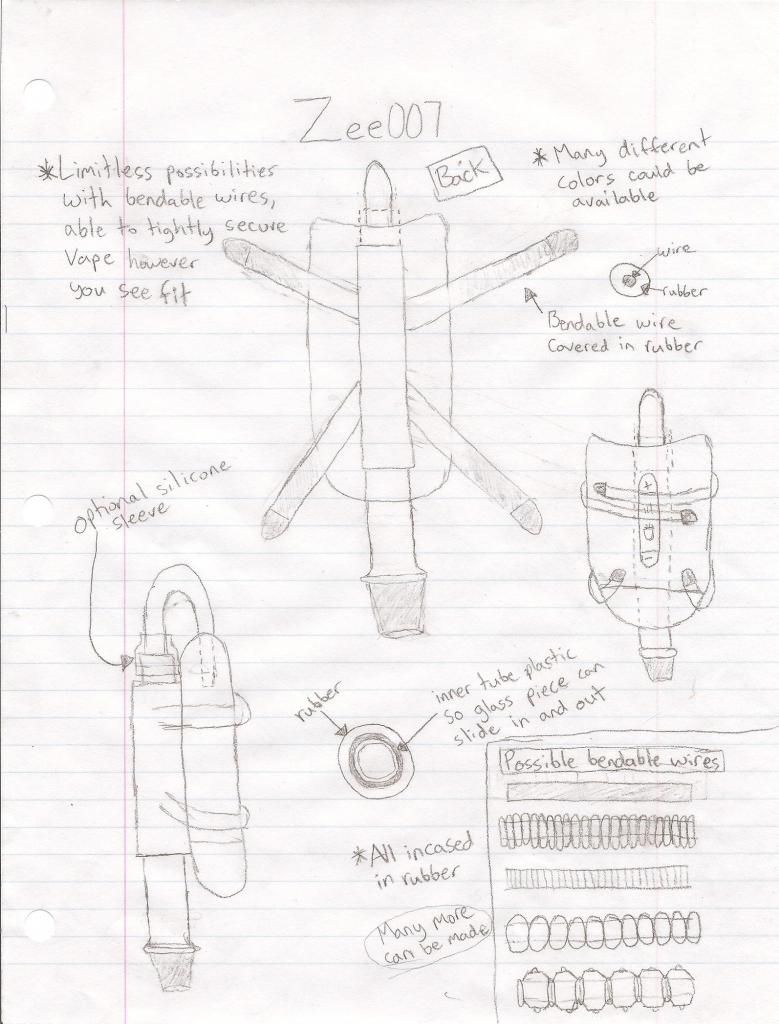 Zee007
*Limitless possibilities
with bendable wires,
able to tightly secure
Vape however
you see fit
Back
*Many different
colors could be
available
wire
rubber
Bendable wire
covered in rubber
optional silicone
sleeve
rubber
inner tube plastic
so glass piece can
slide in and out
Possible bendable wires
*All incased
in rubber
Many more
can be made